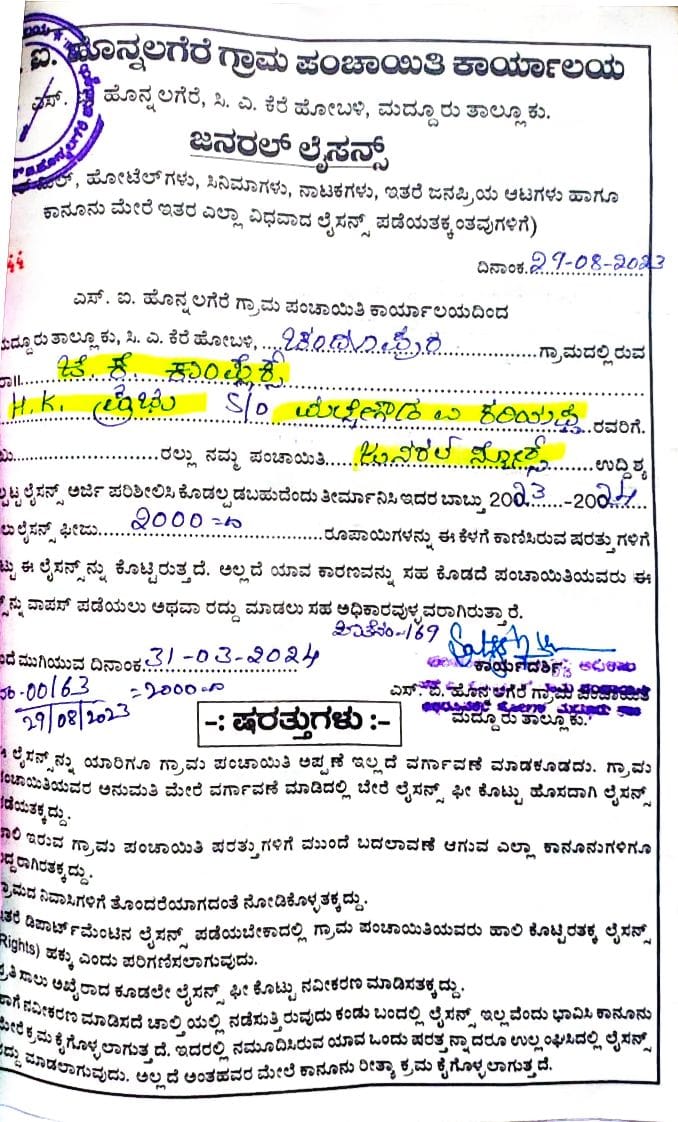 ಐ. ಹೊನ್ನಲಗೆರೆ ಗ್ರಾಮ ಪಂಚಾಯಿತಿ ಕಾರ್ಯಾಲಯ
ಎಸ್. ಐ. ಹೊನ್ನಲಗೆರೆ, ಸಿ. ಎ. ಕೆರೆ ಹೋಬಳಿ, ಮದ್ದೂರು ತಾಲ್ಲೂಕು.
ಜನರಲ್ ಲೈಸನ್ಸ್
ಹೋಟೆಲ್‌ಗಳು, ಸಿನಿಮಾಗಳು, ನಾಟಕಗಳು, ಇತರೆ ಜನಪ್ರಿಯ ಆಟಗಳು ಹಾಗೂ
ಕಾನೂನು ಮೇರೆ ಇತರ ಎಲ್ಲಾ ವಿಧವಾದ ಲೈಸನ್ಸ್ ಪಡೆಯತಕ್ಕಂತವುಗಳಿಗೆ)
44
ದಿನಾಂಕ. 29-08-2023
ಎಸ್. ಐ. ಹೊನ್ನಲಗೆರೆ ಗ್ರಾಮ ಪಂಚಾಯಿತಿ ಕಾರ್ಯಾಲಯದಿಂದ
ಮದ್ದೂರು ತಾಲ್ಲೂಕು, ಸಿ. ಎ. ಕೆರೆ ಹೋಬಳಿ, ಗ್ರಾಮದಲ್ಲಿರುವ
ಜೆ. ಕೆ. ಕಾಂಪ್ಲೆಕ್ಸ್
H.K. ಪ್ರಭು S/o ರವರಿಗೆ.
ರಲ್ಲು ನಮ್ಮ ಪಂಚಾಯಿತಿ ಜನರಲ್ ಸ್ಟೋರ್ಸ್ ಉದ್ದಿಶ್ಯ
ಲೈಸನ್ಸ್ ಅರ್ಜಿ ಪರಿಶೀಲಿಸಿ ಕೊಡಲ್ಪಡಬಹುದೆಂದು ತೀರ್ಮಾನಿಸಿ ಇದರ ಬಾಬ್ತು 2023-2024
ಲೈಸನ್ಸ್ ಫೀಜು 2000=00 ರೂಪಾಯಿಗಳನ್ನು ಈ ಕೆಳಗೆ ಕಾಣಿಸಿರುವ ಷರತ್ತುಗಳಿಗೆ
ಈ ಲೈಸನ್ಸ್‌ನ್ನು ಕೊಟ್ಟಿರುತ್ತದೆ. ಅಲ್ಲದೆ ಯಾವ ಕಾರಣವನ್ನು ಸಹ ಕೊಡದೆ ಪಂಚಾಯಿತಿಯವರು ಈ
ವಾಪಸ್ ಪಡೆಯಲು ಅಥವಾ ರದ್ದು ಮಾಡಲು ಸಹ ಅಧಿಕಾರವುಳ್ಳವರಾಗಿರುತ್ತಾರೆ.
ಮುಗಿಯುವ ದಿನಾಂಕ. 31-03-2024
ಕಾರ್ಯದರ್ಶಿ
00163 =2000=00
29/08/2023
ಎಸ್. ಐ. ಹೊನ್ನಲಗೆರೆ ಗ್ರಾಮ ಪಂಚಾಯಿತಿ
ಮದ್ದೂರು ತಾಲ್ಲೂಕು.
-: ಷರತ್ತುಗಳು :-
ಲೈಸನ್ಸ್‌ನ್ನು ಯಾರಿಗೂ ಗ್ರಾಮ ಪಂಚಾಯಿತಿ ಅಪ್ಪಣೆ ಇಲ್ಲದೆ ವರ್ಗಾವಣೆ ಮಾಡಕೂಡದು. ಗ್ರಾಮ
ಪಂಚಾಯಿತಿಯವರ ಅನುಮತಿ ಮೇರೆ ವರ್ಗಾವಣೆ ಮಾಡಿದಲ್ಲಿ ಬೇರೆ ಲೈಸನ್ಸ್ ಫೀ ಕೊಟ್ಟು ಹೊಸದಾಗಿ ಲೈಸನ್ಸ್
ಪಡೆಯತಕ್ಕದ್ದು.
ಹಾಲಿ ಇರುವ ಗ್ರಾಮ ಪಂಚಾಯಿತಿ ಷರತ್ತುಗಳಿಗೆ ಮುಂದೆ ಬದಲಾವಣೆ ಆಗುವ ಎಲ್ಲಾ ಕಾನೂನುಗಳಿಗೂ
ಬದ್ಧರಾಗಿರತಕ್ಕದ್ದು.
ಗ್ರಾಮದ ನಿವಾಸಿಗಳಿಗೆ ತೊಂದರೆಯಾಗದಂತೆ ನೋಡಿಕೊಳ್ಳತಕ್ಕದ್ದು.
ಇತರೆ ಡಿಪಾರ್ಟ್‌ಮೆಂಟಿನ ಲೈಸನ್ಸ್ ಪಡೆಯಬೇಕಾದಲ್ಲಿ ಗ್ರಾಮ ಪಂಚಾಯಿತಿಯವರು ಹಾಲಿ ಕೊಟ್ಟಿರತಕ್ಕ ಲೈಸನ್ಸ್
Rights) ಹಕ್ಕು ಎಂದು ಪರಿಗಣಿಸಲಾಗುವುದು.
ಪ್ರತಿ ಸಾಲು ಅಖೈರಾದ ಕೂಡಲೇ ಲೈಸನ್ಸ್ ಫೀ ಕೊಟ್ಟು ನವೀಕರಣ ಮಾಡಿಸತಕ್ಕದ್ದು.
ಹಾಗೆ ನವೀಕರಣ ಮಾಡಿಸದೆ ಚಾಲ್ತಿಯಲ್ಲಿ ನಡೆಸುತ್ತಿರುವುದು ಕಂಡು ಬಂದಲ್ಲಿ ಲೈಸನ್ಸ್ ಇಲ್ಲವೆಂದು ಭಾವಿಸಿ ಕಾನೂನು
ಮೇರೆ ಕ್ರಮ ಕೈಗೊಳ್ಳಲಾಗುತ್ತದೆ. ಇದರಲ್ಲಿ ನಮೂದಿಸಿರುವ ಯಾವ ಒಂದು ಷರತ್ತನ್ನಾದರೂ ಉಲ್ಲಂಘಿಸಿದಲ್ಲಿ ಲೈಸನ್ಸ್
ರದ್ದು ಮಾಡಲಾಗುವುದು. ಅಲ್ಲದೆ ಅಂತಹವರ ಮೇಲೆ ಕಾನೂನು ರೀತ್ಯಾ ಕ್ರಮ ಕೈಗೊಳ್ಳಲಾಗುತ್ತದೆ.